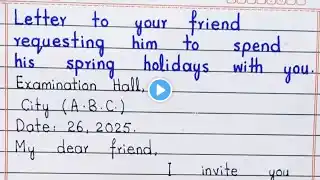 Letter to your friend
requesting him to spend
his spring holidays with you.
Examination Hall,
City (A.B.C.)
Date: 26, 2025.
My dear friend,
I invite you